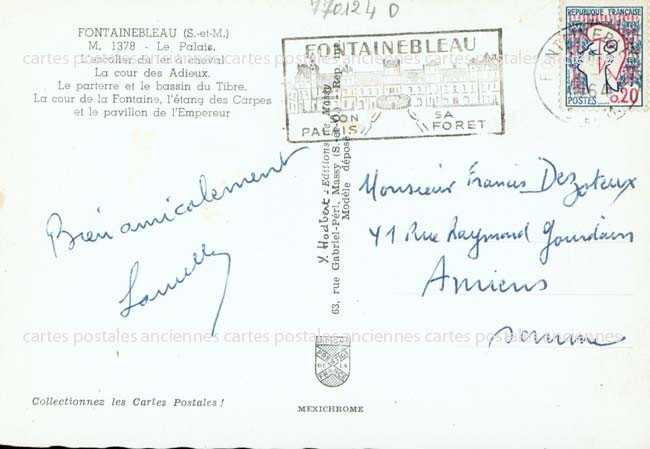 770124 D
FONTAINEBLEAU (S.-et-M.)
M. 1378 - Le Palais.
L'escalier du fer à cheval
La cour des Adieux.
Le parterre et le bassin du Tibre.
La cour de la Fontaine, l'étang des Carpes
et le pavillon de l'Empereur
FONTAINEBLEAU
SON
PALAIS
SA
FORET
REPUBLIQUE FRANÇAISE
POSTES
0,20
Bien amicalement
Monsieur Francis Dezoteux
41 Rue Raymond Gourdain
Amiens
Somme
Editions de Massy
63, rue Gabriel-Péri, Massy (S.-et-O.)
Modèle déposé
cartes postales anciennes cartes postales anciennes cartes postales anciennes
cartes postales anciennes cartes postales anciennes cartes postales anciennes
PRESTIGE
DE LA
FRANCE
Collectionnez les Cartes Postales !
MEXICHROME